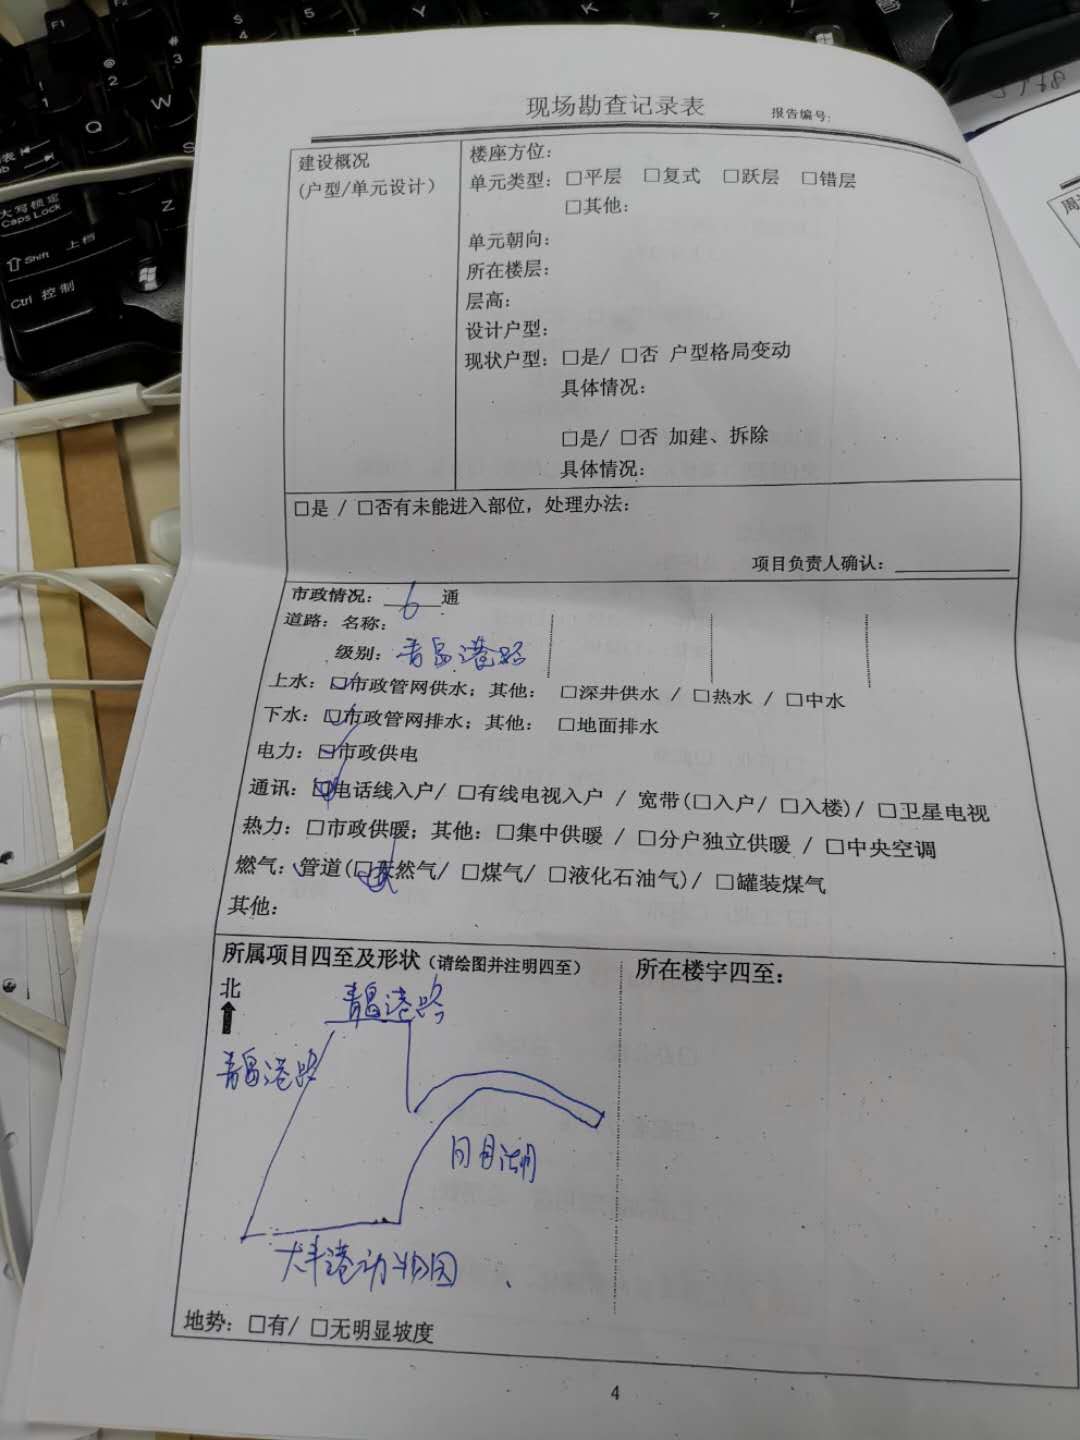 现场勘查记录表 报告编号:
建设概况
(户型/单元设计)
楼座方位:
单元类型: □平层 □复式 □跃层 □错层
□其他:
单元朝向:
所在楼层:
层高:
设计户型:
现状户型: □是/ □否 户型格局变动
具体情况:
□是/ □否 加建、拆除
具体情况:
□是 / □否有未能进入部位, 处理办法:
项目负责人确认:
市政情况: 6 通
道路: 名称:
级别: 青昌港路
上水: ☑市政管网供水; 其他: □深井供水 / □热水 / □中水
下水: ☑市政管网排水; 其他: □地面排水
电力: ☑市政供电
通讯: ☑电话线入户/ □有线电视入户 / 宽带(□入户/ □入楼)/ □卫星电视
热力: □市政供暖; 其他: □集中供暖 / □分户独立供暖 / □中央空调
燃气: 管道(☑天然气/ □煤气/ □液化石油气)/ □罐装煤气
其他:
所属项目四至及形状 (请绘图并注明四至)
北
青昌港路
青昌港路
日月湖
大丰港动物园
所在楼宇四至:
地势: □有/ □无明显坡度
4
Q
W
Z
Caps Lock
Shift 上档
Ctrl 控制